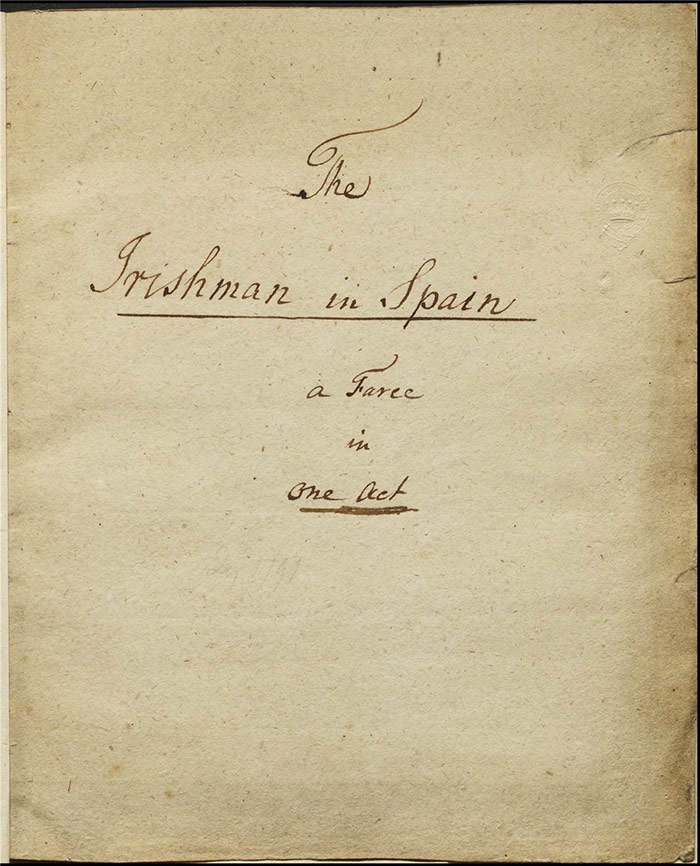 The
Irishman in Spain
a Farce
in
one Act